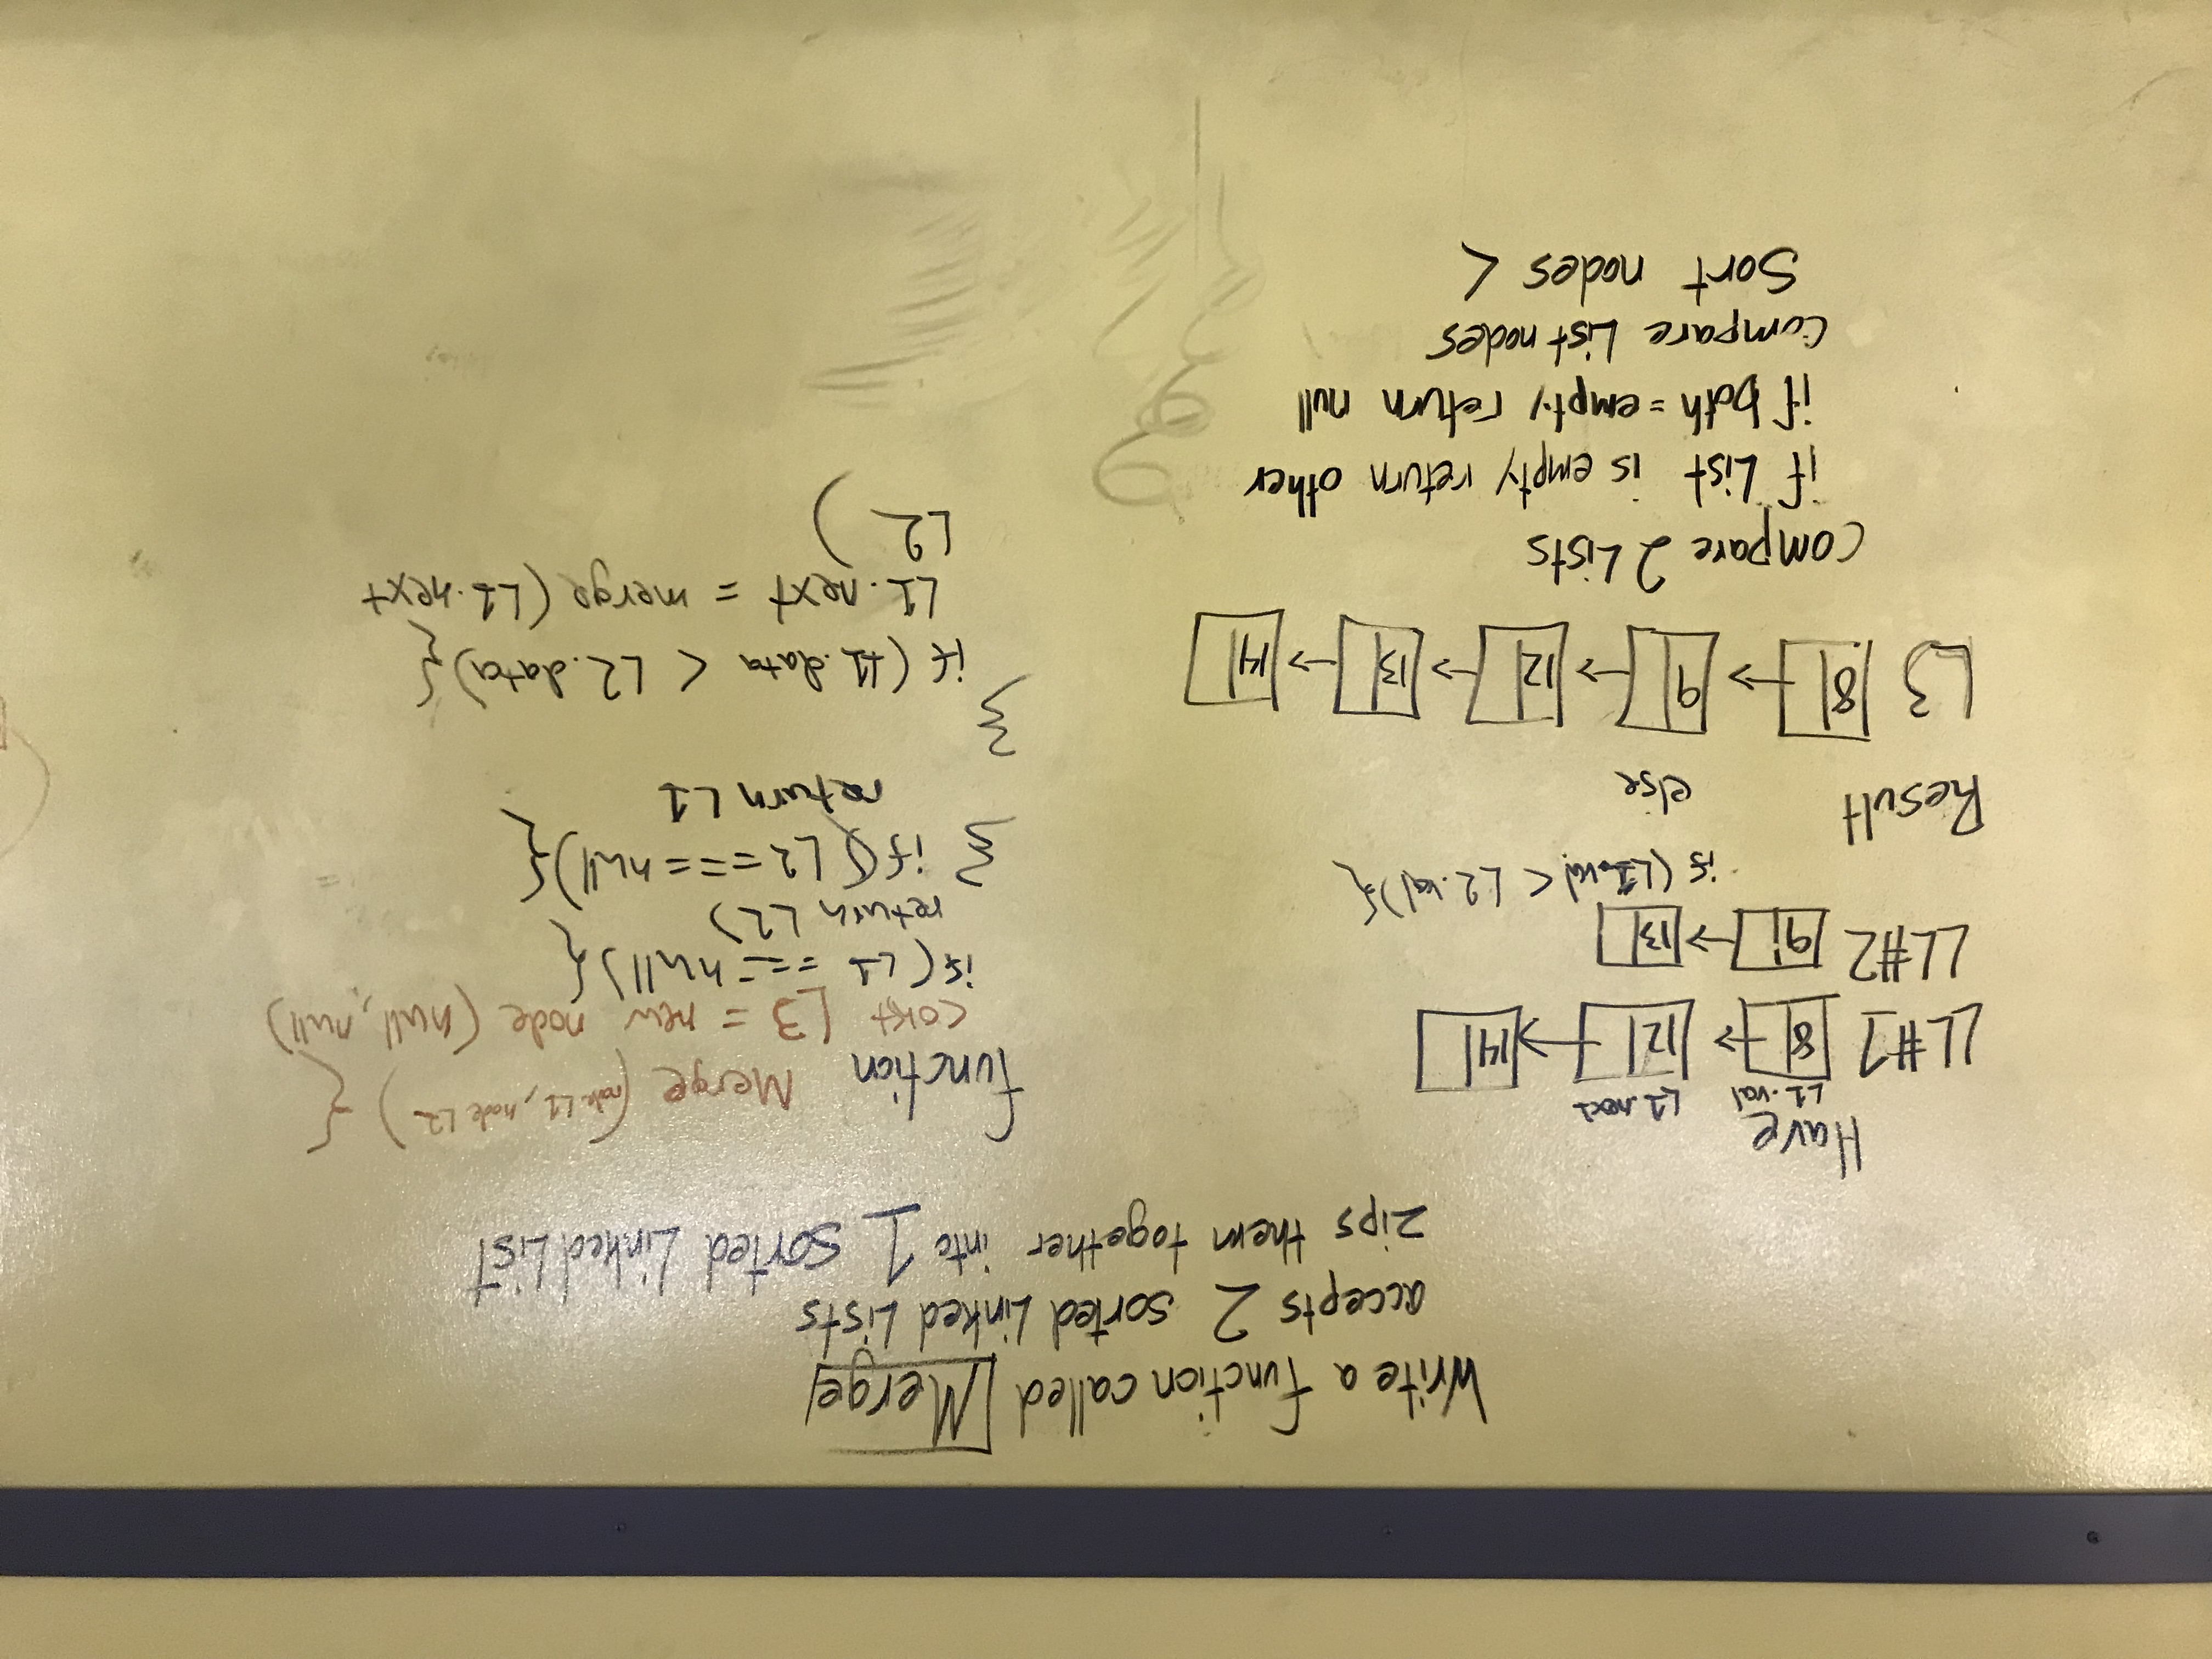 Write a function called Merge
accepts 2 sorted Linked Lists
zips them together into 1 sorted Linked List
Have
L1.val L1.next
LL#1 8 → 12 → 14
LL#2 9 → 13
if (L1.val < L2.val){
Result
else
L3 8 → 9 → 12 → 13 → 14
compare 2 Lists
if List is empty return other
if both = empty return null
compare List nodes
Sort nodes <
function Merge (node L1, node L2) {
const L3 = new node (null, null)
if( L1 === null){
return L2)
} if( L2 === null){
return L1
}
if (L1.data < L2.data){
L1.next = merge (L1.next
L2 )